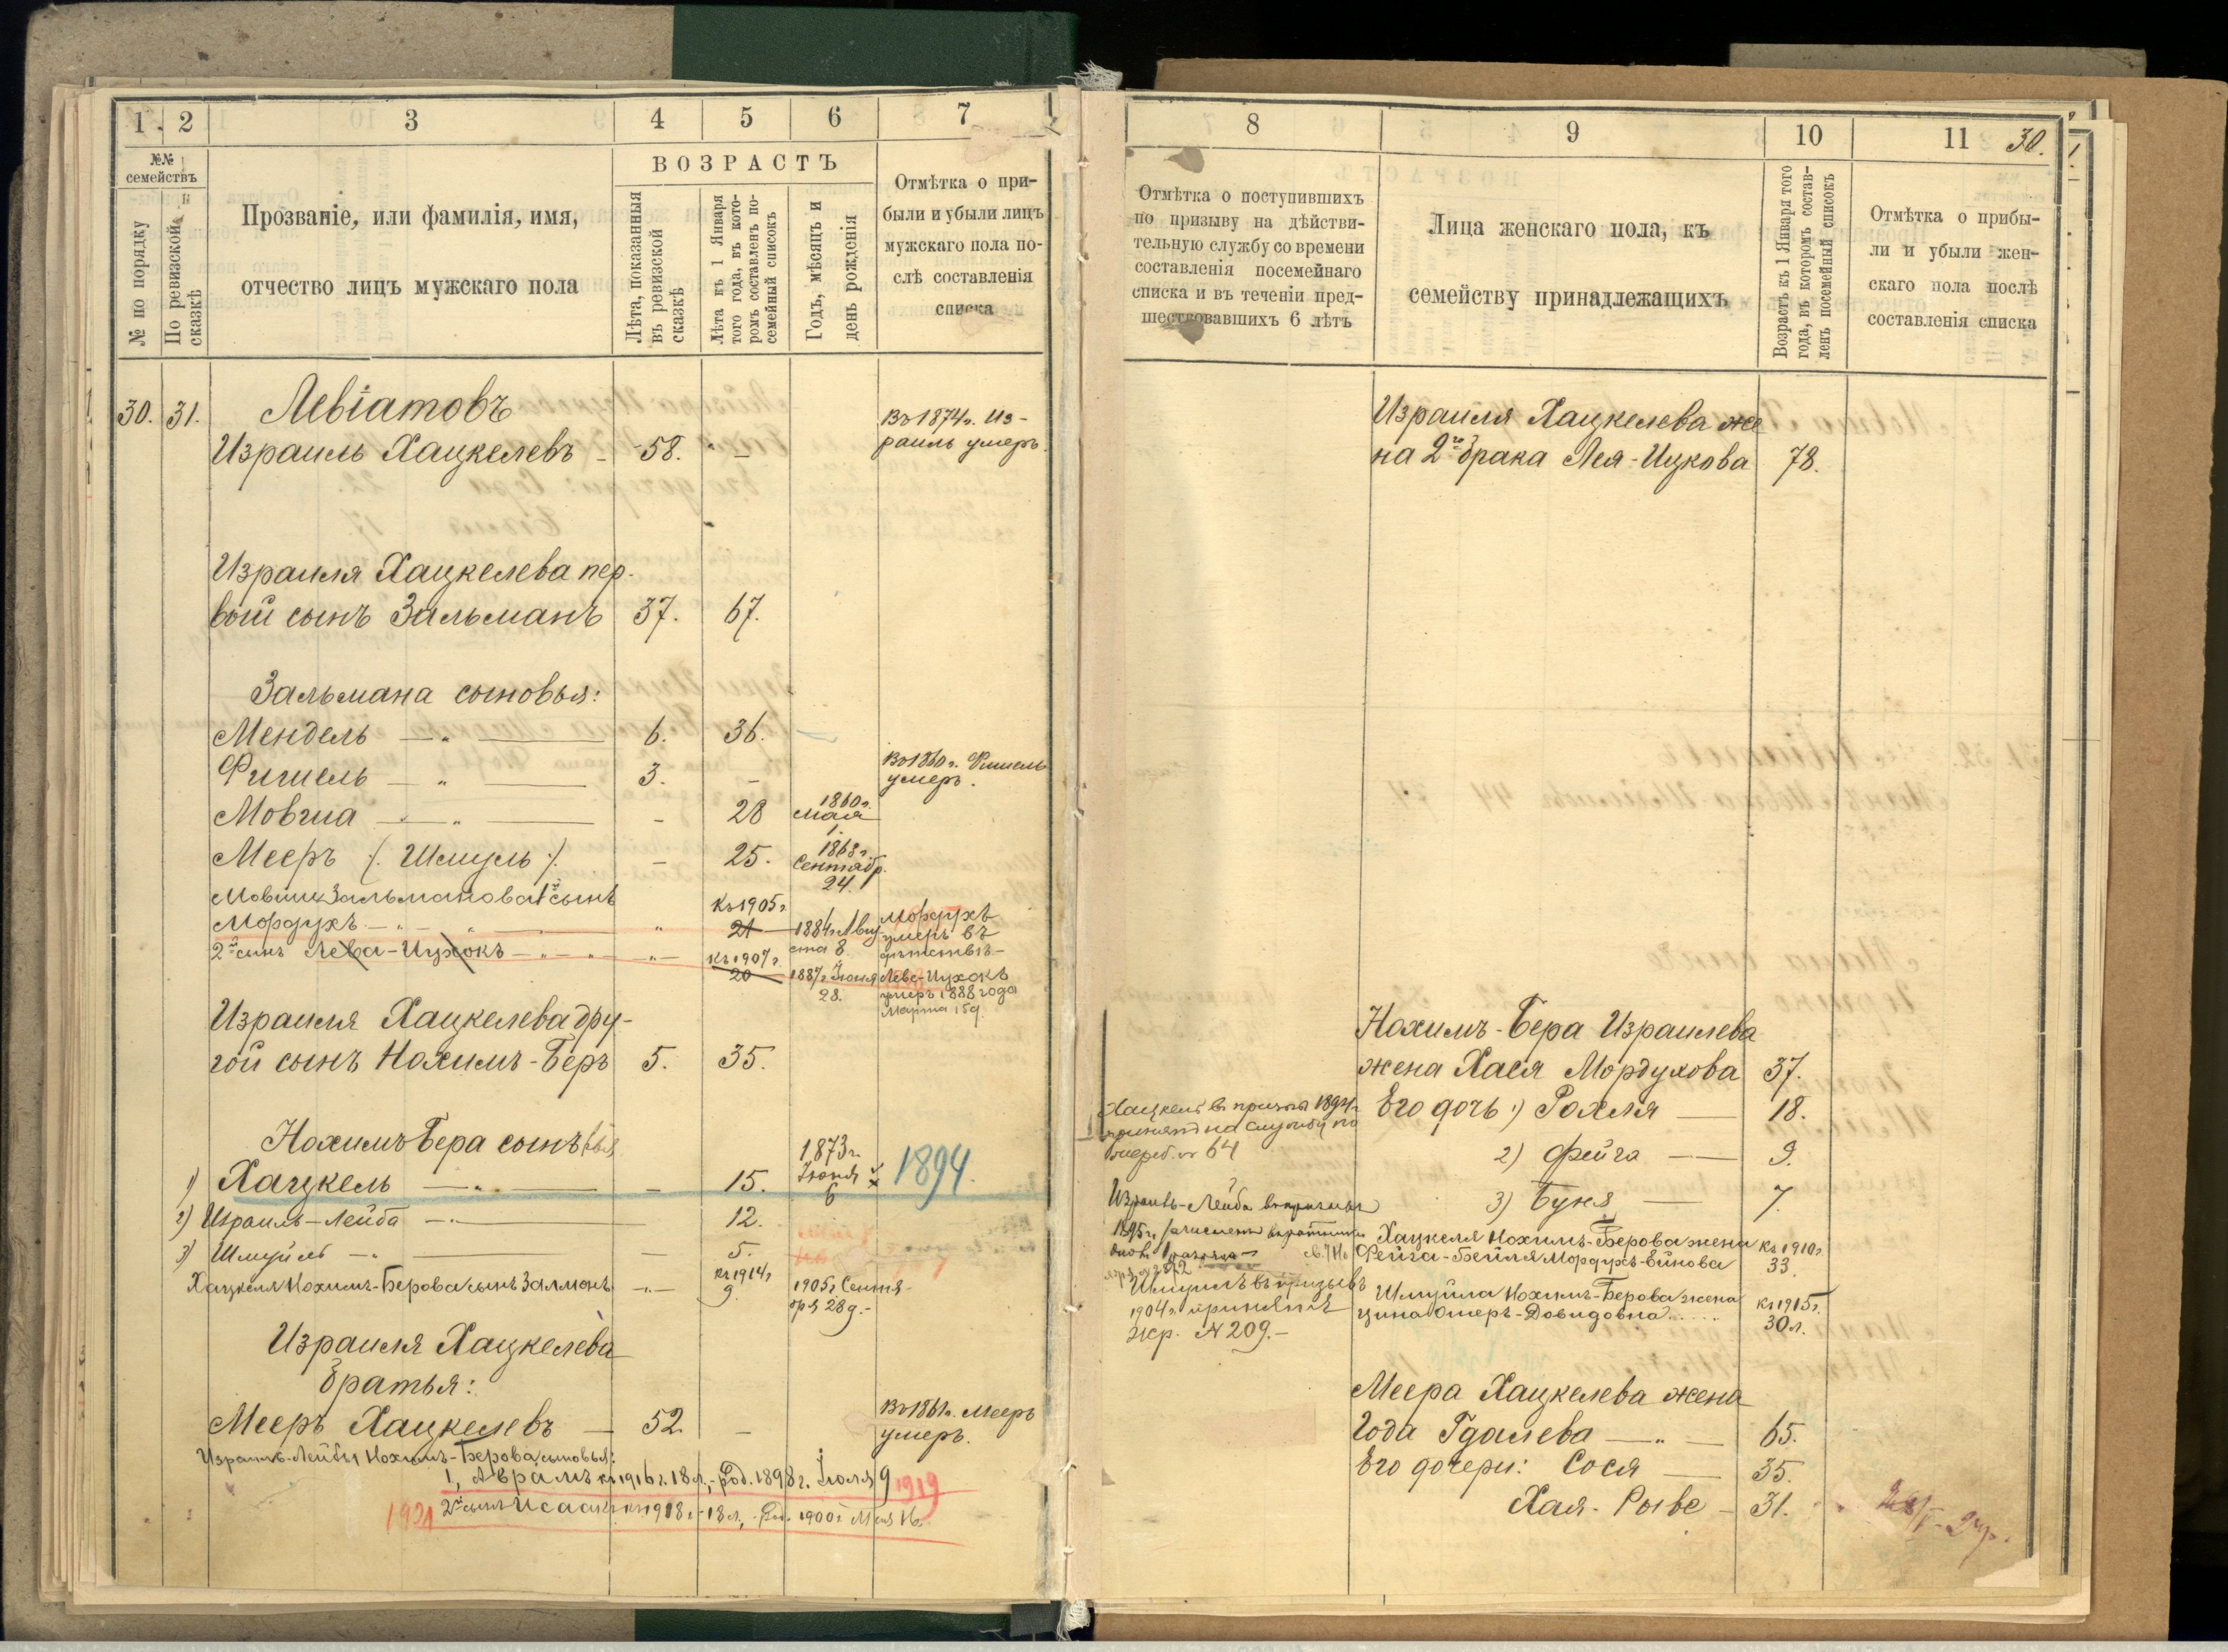 1. 2 3 4 5 6 7
№№ семействъ
№ по порядку
По ревизской сказкѣ
Прозваніе, или фамилія, имя,
отчество лицъ мужскаго пола
ВОЗРАСТЪ
Лѣта, показанныя
въ ревизской
сказкѣ
Лѣта къ 1 Января
того года, въ кото-
ромъ составленъ по-
семейный списокъ
Годъ, мѣсяцъ и
день рожденія
Отмѣтка о при-
были и убыли лицъ
мужскаго пола по-
слѣ составленія
списка
30. 31. Левіатовъ
Израиль Хацкелевъ - 58. " -
Въ 1874 г. Из-
раиль умеръ.
Израиля Хацкелева пер-
вый сынъ Зальманъ 37. 67.
Зальмана сыновья:
Мендель — " — 6. 36.
Фишель — " — 3. -
Въ 1860 г. Фишель
умеръ.
Мовша — " — - 28 1860 г. Мая 1.
Мееръ /. Шмуль ./ - 25. 1863 г. Сентябр. 24.
Мовши Зальманова 1й сынъ
Мордухъ - " - " къ 1905 г. 21 1884 г. Авгу-
ста 8.
Мордухъ
умеръ въ
дѣтствѣ -
2й сынъ Лева-Ицхокъ - " - " - къ 1907 г. 20 1887 г. Іюня
28.
Лева-Ицхокъ
умеръ 1888 года
Марта 15 д.
Израиля Хацкелева дру-
гой сынъ Нохимъ-Беръ 5. 35.
Нохимъ Бера сыновья
1) Хацкель — " — - 15. 1873 г. Іюня 6 1894.
2) Израиль-Лейба — " — 12.
3) Шмуйла — " — - 5.
Хацкеля Нохимъ-Берова сынъ Залманъ - " - къ 1914 г. 9 1905 г. Сентя-
бря 28 д. -
Израиля Хацкелева
братья:
Мееръ Хацкелевъ — 52. -
Въ 1861 г. Мееръ
умеръ.
Израиль-Лейбы Нохимъ-Берова сыновья:
1, Аврамъ къ 1916 г. 18 л., - Род. 1898 г. Іюля 9 1919
1921 2й сынъ Исаакъ къ 1918 г. - 18 л., - Род. 1900 г. Мая 16.
8 9 10 11 30.
Отмѣтка о поступившихъ
по призыву на дѣйстви-
тельную службу со времени
составленія посемейнаго
списка и въ теченіи пред-
шествовавшихъ 6 лѣтъ
Лица женскаго пола, къ
семейству принадлежащихъ
Возрастъ къ 1 Января того
года, въ которомъ состав-
ленъ посемейный списокъ
Отмѣтка о прибы-
ли и убыли жен-
скаго пола послѣ
составленія списка
Израиля Хацкелева же-
на 2го брака Лея-Ицкова 78.
Нохимъ-Бера Израилева
жена Хася Мордухова 37.
Его дочь 1) Рохля — 18.
2) Фейга — 9.
3) Буня — 7.
Хацкель въ призыв 1894 г.
принятъ на службу по
жереб. № 64
Израиль-Лейба въ призывъ
1895 г. зачисленъ
Хацкеля Нохимъ-Берова жена
Фейга-Бейля Мордухъ-Ейнова къ 1910 г. 33.
Шмуилъ въ призывъ
1904 г. принятъ
жер. N 209. -
Шмуйла Нохимъ-Берова жена
Цина Омеръ-Довидовна..... къ 1915 г. 30 л.
Меера Хацкелева жена
Года Гдалева — " — 65.
Его дочери: Сося — 35.
Хая-Рыве - 31.